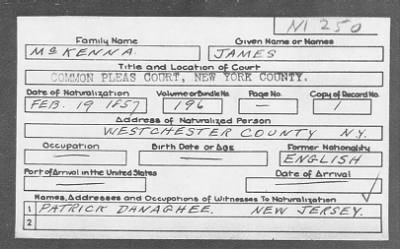 M 250
Family Name Given Name or Names
McKENNA. JAMES
Title and Location of Court
COMMON PLEAS COURT, NEW YORK COUNTY.
Date of Naturalization Volume or Bundle No. Page No. Copy of Record No.
FEB. 19 1857 196 — 1
Address of Naturalized Person
WESTCHESTER COUNTY N.Y.
Occupation Birth Date or Age Former Nationality
— — ENGLISH
Port of Arrival in the United States Date of Arrival
— —
Names, Addresses and Occupations of Witnesses To Naturalization
1 PATRICK DANAGHEE. NEW JERSEY.
2